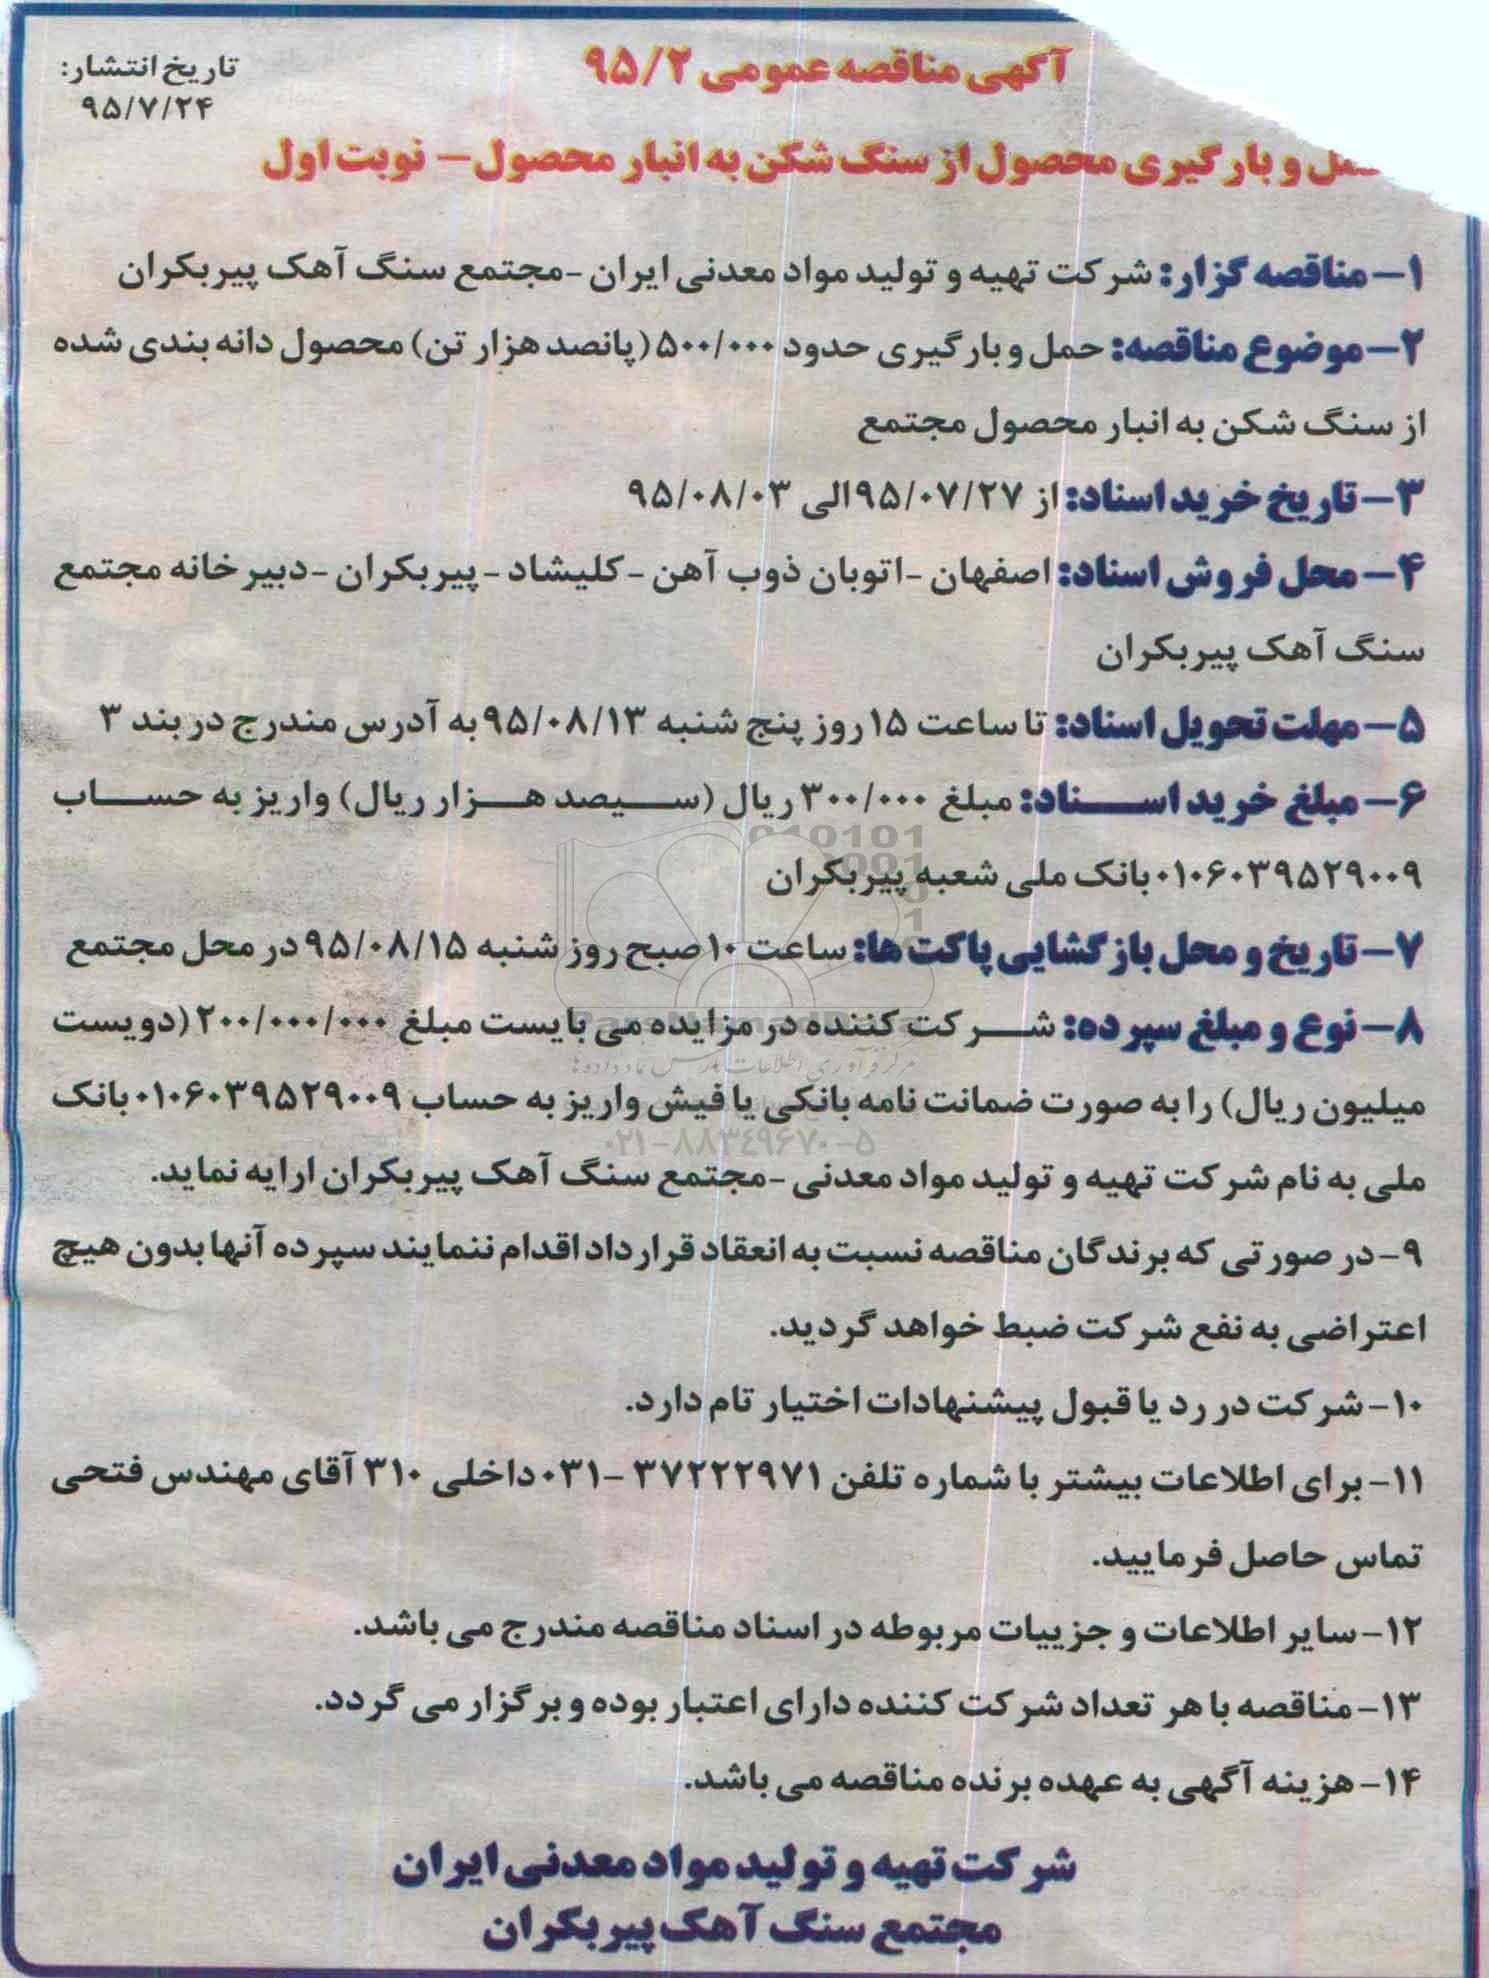 آگهی مناقصه عمومی ۹۵/۲
تاریخ انتشار:
۹۵/۷/۲۴
و بارگیری محصول از سنگ شکن به انبار محصول – نوبت اول
۱- مناقصه گزار: شرکت تهیه و تولید مواد معدنی ایران -مجتمع سنگ آهک پیربکران
۲- موضوع مناقصه: حمل و بارگیری حدود ۵۰۰/۰۰۰ (پانصد هزار تن) محصول دانه بندی شده
از سنگ شکن به انبار محصول مجتمع
۳- تاریخ خرید اسناد: از ۹۵/۰۷/۲۷ الی ۹۵/۰۸/۰۳
۴- محل فروش اسناد: اصفهان -اتوبان ذوب آهن -کلیشاد -پیربکران -دبیرخانه مجتمع
سنگ آهک پیربکران
۵- مهلت تحویل اسناد: تا ساعت ۱۵ روز پنج شنبه ۹۵/۰۸/۱۳ به آدرس مندرج در بند ۳
۶- مبلغ خرید اسناد: مبلغ ۳۰۰/۰۰۰ ریال (سیصد هزار ریال) واریز به حساب
۰۱۰۶۰۳۹۵۲۹۰۰۹ بانک ملی شعبه پیربکران
۷- تاریخ و محل بازگشایی پاکت ها: ساعت ۱۰ صبح روز شنبه ۹۵/۰۸/۱۵ در محل مجتمع
۸- نوع و مبلغ سپرده: شرکت کننده در مزایده می بایست مبلغ ۲۰۰/۰۰۰/۰۰۰ (دویست
میلیون ریال) را به صورت ضمانت نامه بانکی یا فیش واریز به حساب ۰۱۰۶۰۳۹۵۲۹۰۰۹ بانک
ملی به نام شرکت تهیه و تولید مواد معدنی -مجتمع سنگ آهک پیربکران ارایه نماید.
۹- در صورتی که برندگان مناقصه نسبت به انعقاد قرارداد اقدام ننمایند سپرده آنها بدون هیچ
اعتراضی به نفع شرکت ضبط خواهد گردید.
۱۰- شرکت در رد یا قبول پیشنهادات اختیار تام دارد.
۱۱- برای اطلاعات بیشتر با شماره تلفن ۳۷۲۲۲۹۷۱ -۰۳۱ داخلی ۳۱۰ آقای مهندس فتحی
تماس حاصل فرمایید.
۱۲- سایر اطلاعات و جزییات مربوطه در اسناد مناقصه مندرج می باشد.
۱۳- مناقصه با هر تعداد شرکت کننده دارای اعتبار بوده و برگزار می گردد.
۱۴- هزینه آگهی به عهده برنده مناقصه می باشد.
شرکت تهیه و تولید مواد معدنی ایران
مجتمع سنگ آهک پیربکران
۰۲۱-۸۸۳۴۹۶۷۰-۵